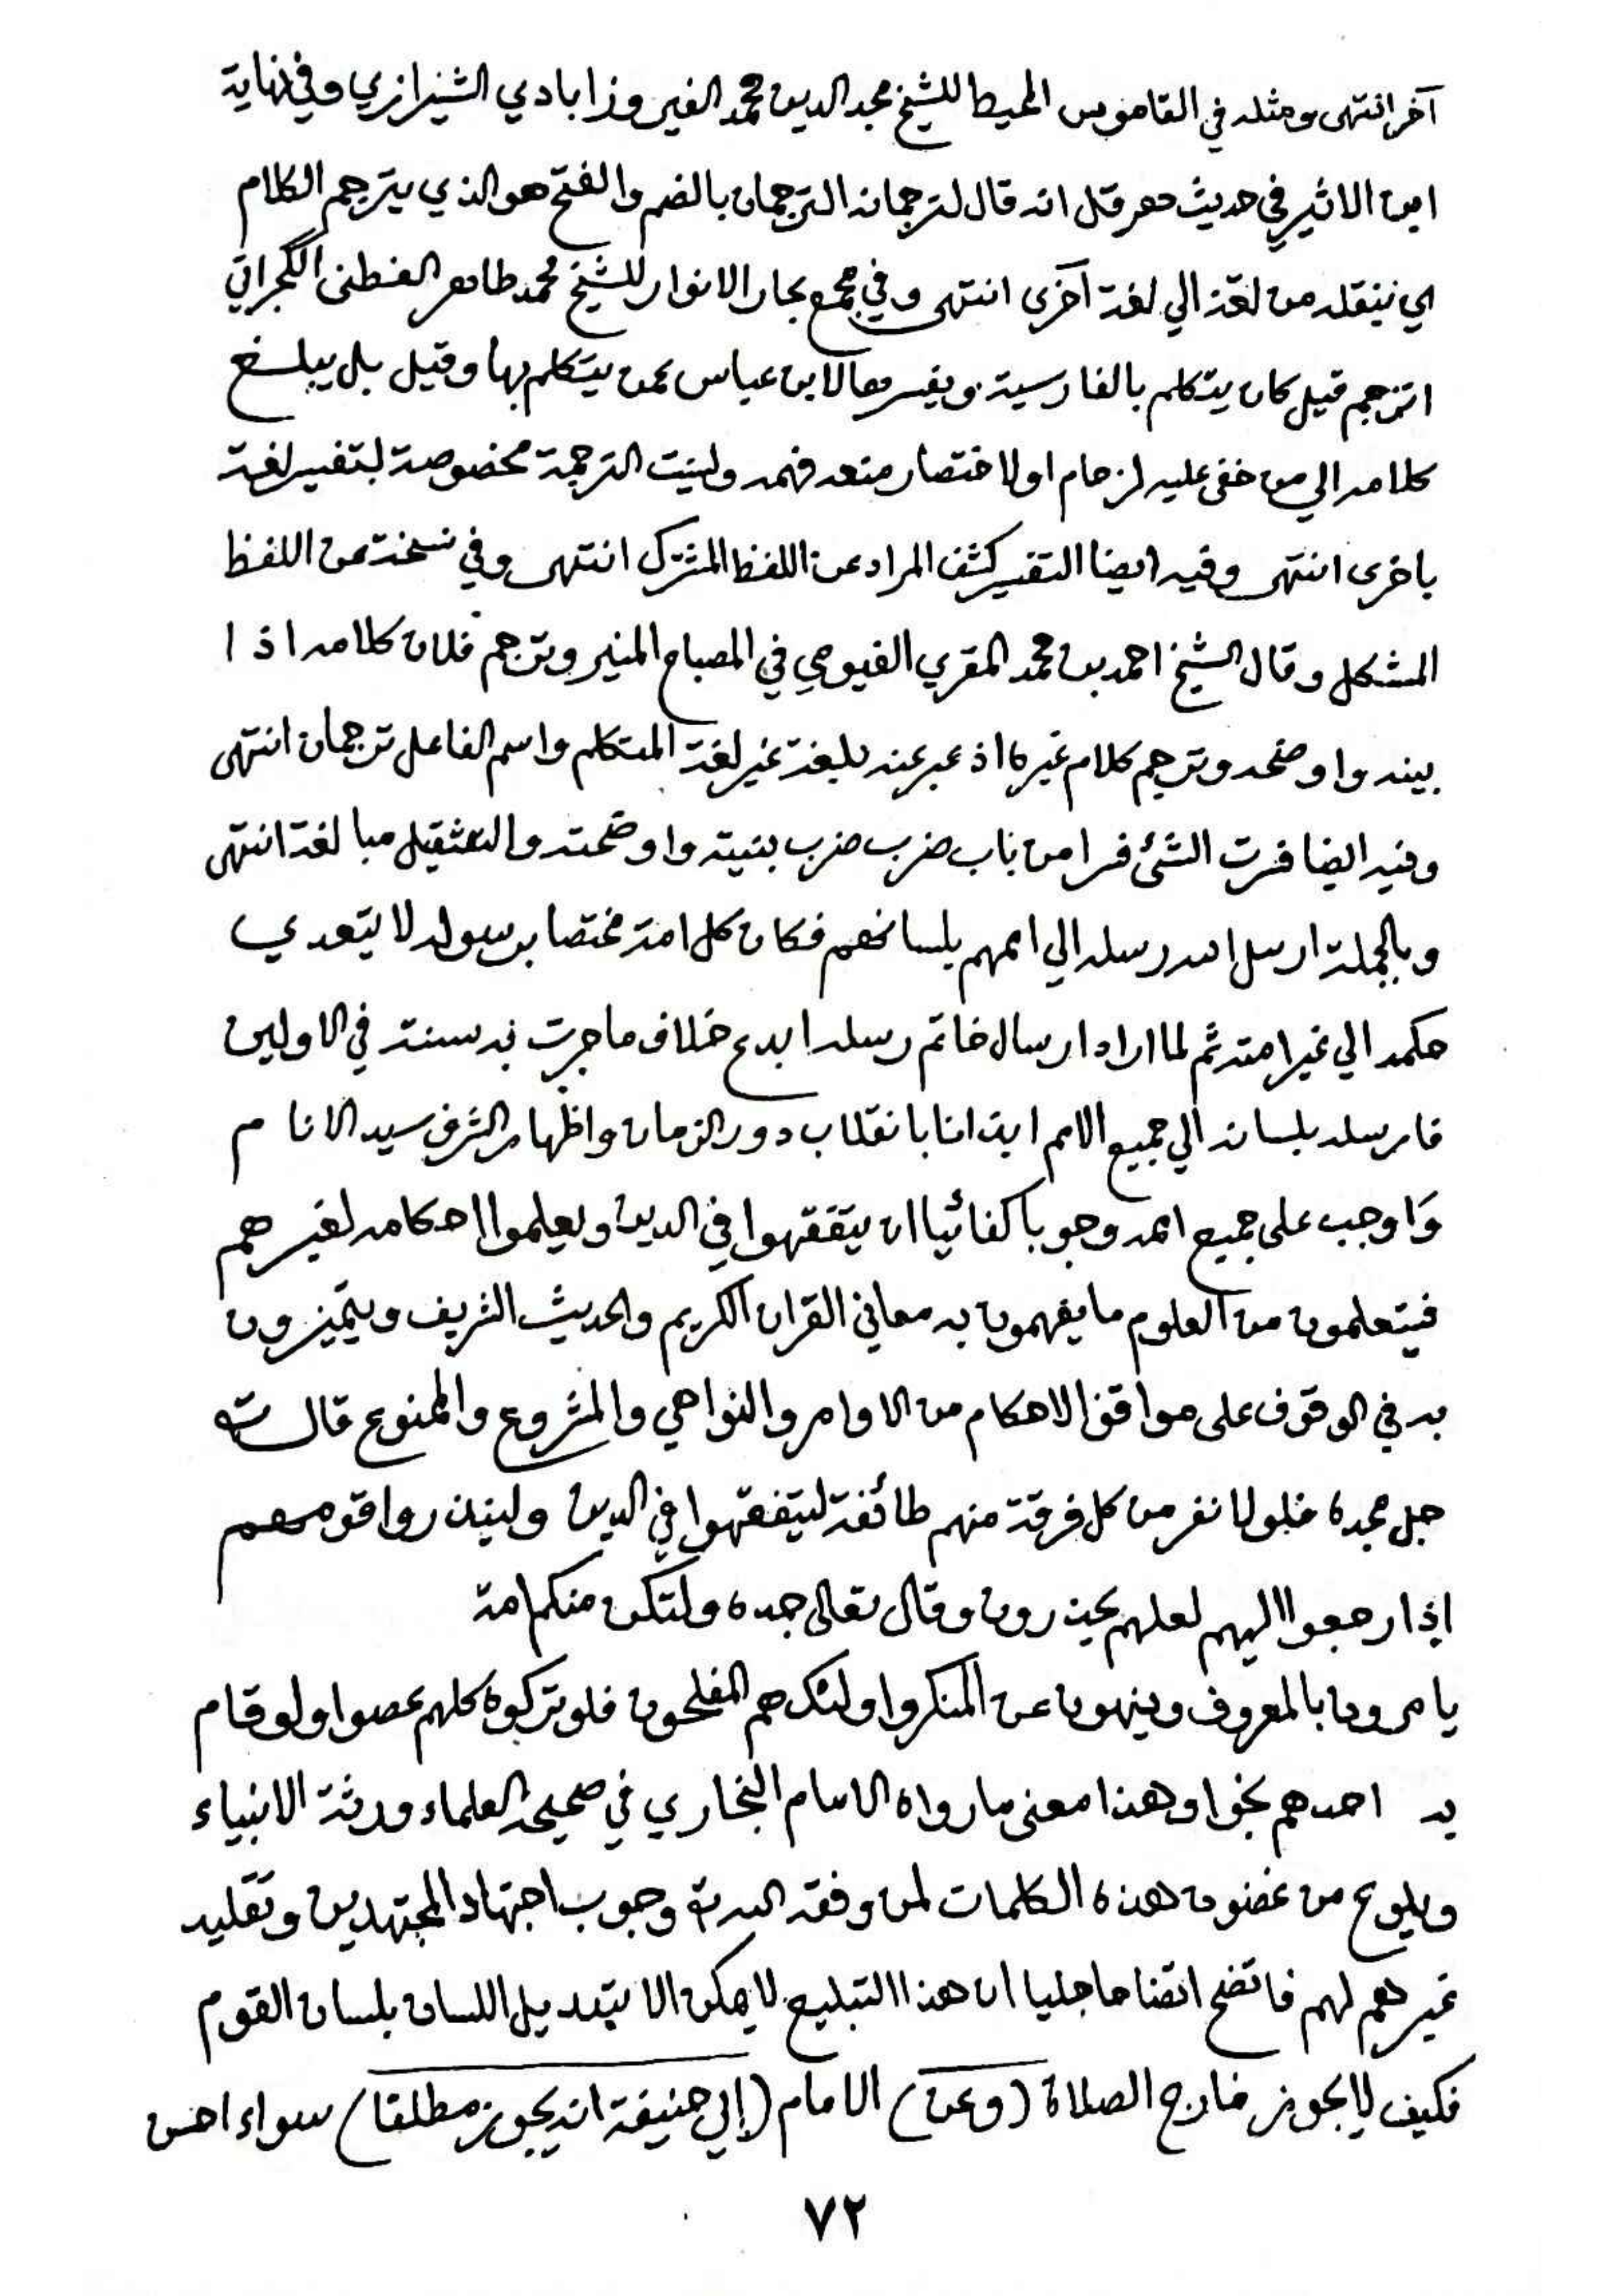 آخر انتهى ومثله في القاموس المحيط للشيخ مجد الدين محمد الفيروزابادي الشيرازي وفي نهاية
ابن الاثير في حديث هرقل انه قال لترجمانه الترجمان بالضم والفتح هو الذي يترجم الكلام
اي ينقله من لغة الي لغة آخرى انتهى وفي مجمع بحار الانوار للشيخ محمد طاهر الفطنى الگجراتي
اترجم قيل كان يتكلم بالفارسية ويفسرها لابن عباس عمن يتكلم بها وقيل بل يبلغ
كلامه الي من خفى عليه لزحام او لاختصار منعه فهمه وليست الترجمة مخصوصة بتفسير لغة
باخرى انتهى وفيه ايضا التفسير كشف المراد عن اللفظ المشترك انتهى وفي نسخة عن اللفظ
المشكل وقال الشيخ احمد بن محمد المقري الفيومي في المصباح المنير وترجم فلان كلامه اذا
بينه واوضحه وترجم كلام غيره اذ عبر عنه بلغة غير لغة المتكلم واسم الفاعل ترجمان انتهى
وفيه ايضا فسرت الشئ فسرا من باب ضرب ضرب بنيته واوضحته والتثقيل مبالغة انتهى
وبالجملة ارسل الله رسله الي اممهم بلسانهم فكان كل امة مختصا برسوله لا يتعدي
حكمه الي غير امته ثم لما اراد ارسال خاتم رسله ابدع خلاف ما جرت به سنته في الاولين
فارسله بلسانه الي جميع الامم ايذانا بانقلاب دور الزمان واظهار الشرف سيد الانام
وَاوجب على جميع اممه وجوبا كفائيا ان يتفقهوا في الدين ويعلموا احكامه لغيرهم
فيتعلمون من العلوم ما يفهمون به معاني القران الكريم والحديث الشريف ويتميزون
به في الوقوف على مواقف الاحكام من الاوامر والنواهي والمشروع والممنوع قال الله
جل مجده فلولا نفر من كل فرقة منهم طائفة ليتفقهوا في الدين ولينذروا قومهم
إذا رجعوا اليهم لعلهم يحذرون وقال تعالى جده ولتكن منكم امة
يامرون بالمعروف وينهون عن المنكر واولئك هم المفلحون فلو تركوه كلهم عصوا ولو قام
به احدهم نجوا وهذا معنى ما رواه الامام البخاري في صحيحه العلماء ورثة الانبياء
ويلوح من غضون هذه الكلمات لمن وفقه الله وجوب اجتهاد المجتهدين وتقليد
غيرهم لهم فاتضح اتضاحا جليا ان هذا التبليغ لا يمكن الا بتبديل اللسان بلسان القوم
فكيف لا يجوز خارج الصلاة (وعن) الامام (ابي حنيفة انه يجوز مطلقا) سواء احسن
٧٢